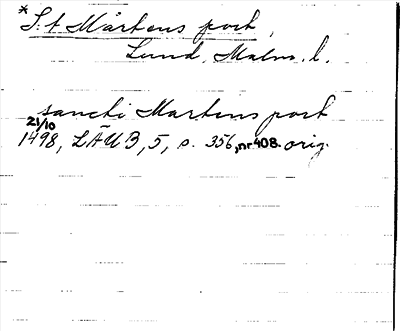 *S:t Mårtens port,
Lund, Malm. l.
sancti Martens port
21/10
1498, LÄUB, 5, s. 356, nr 408. orig.